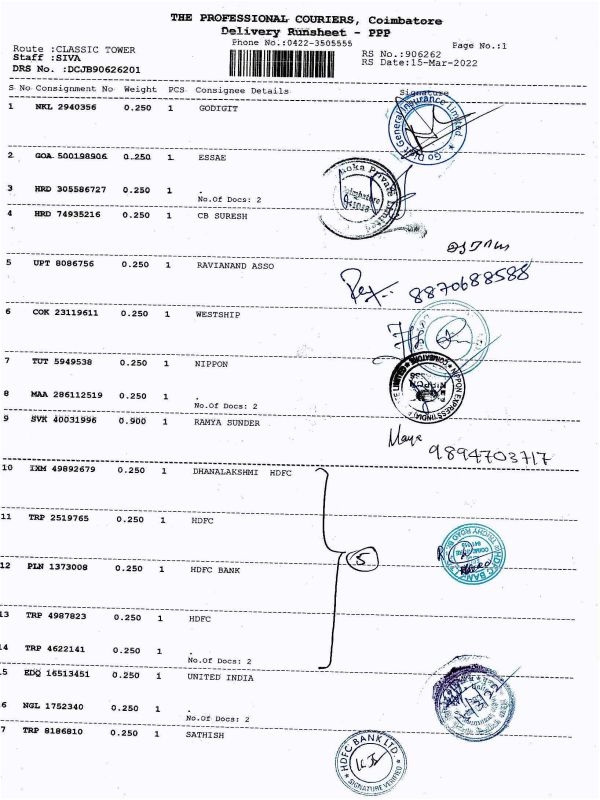 THE PROFESSIONAL COURIERS, Coimbatore
Delivery Runsheet - PPP
Phone No.:0422-3505555
Page No.:1
Route :CLASSIC TOWER
RS No.:906262
Staff :SIVA
RS Date:15-Mar-2022
DRS No. :DCJB90626201
S No Consignment No Weight PCS Consignee Details Signature
1 NKL 2940356 0.250 1 GODIGIT
Go Digit General Insurance Limited
2 GOA 500198906 0.250 1 ESSAE
3 HRD 305586727 0.250 1 .
No.Of Docs: 2
Private Limited
4 HRD 74935216 0.250 1 CB SURESH
5 UPT 8086756 0.250 1 RAVIANAND ASSO
8870688588
6 COK 23119611 0.250 1 WESTSHIP
7 TUT 5949538 0.250 1 NIPPON
NIPPON EXPRESS (INDIA)
COIMBATORE
8 MAA 286112519 0.250 1 .
No.Of Docs: 2
9 SVK 40031996 0.900 1 RAMYA SUNDER
Maya
9894703717
10 IXM 49892679 0.250 1 DHANALAKSHMI HDFC
11 TRP 2519765 0.250 1 HDFC
HDFC BANK
TRICHY ROAD
5
12 PLN 1373008 0.250 1 HDFC BANK
13 TRP 4987823 0.250 1 HDFC
14 TRP 4622141 0.250 1 .
No.Of Docs: 2
5 EDQ 16513451 0.250 1 UNITED INDIA
6 NGL 1752340 0.250 1 .
No.Of Docs: 2
7 TRP 8186810 0.250 1 SATHISH
HDFC BANK LTD.
SIGNATURE VERIFIED